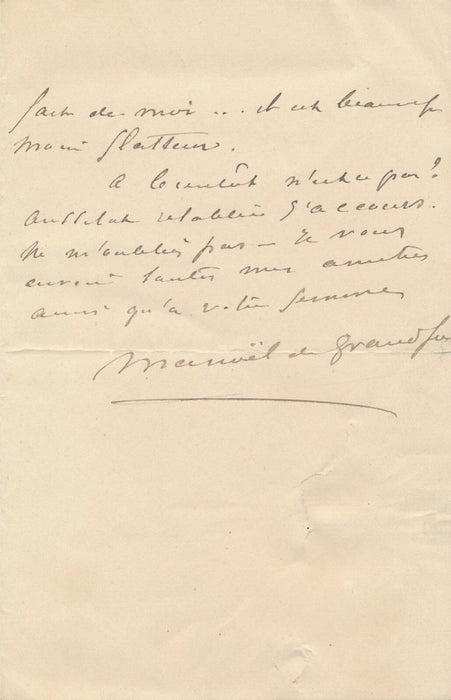 fait de moi ... il est beaucoup
moins flatteur.
A bientôt n'est-ce pas?
Aussitôt rétablie j'accours.
Ne m'oubliez pas — Je vous
envoie toutes mes amitiés
ainsi qu'à votre femme
Manoël de Grandfort